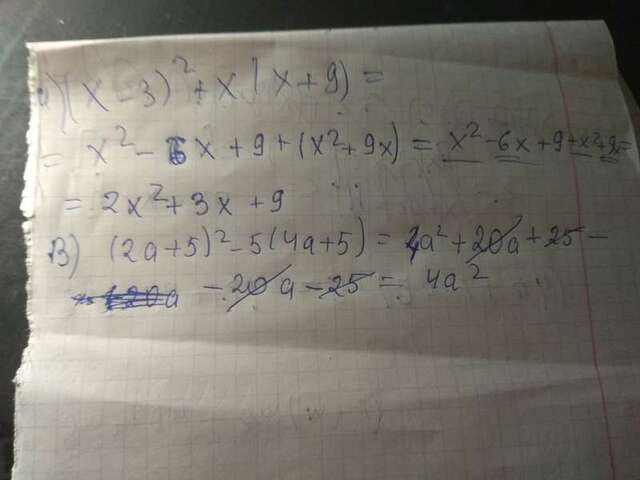 а) (x-3)² + x(x+9) =
= x² - 6x + 9 + (x² + 9x) = x² - 6x + 9 + x² + 9x =
= 2x² + 3x + 9
В) (2a+5)² - 5(4a+5) = 4a² + 20a + 25 -
- 20a - 25 = 4a²